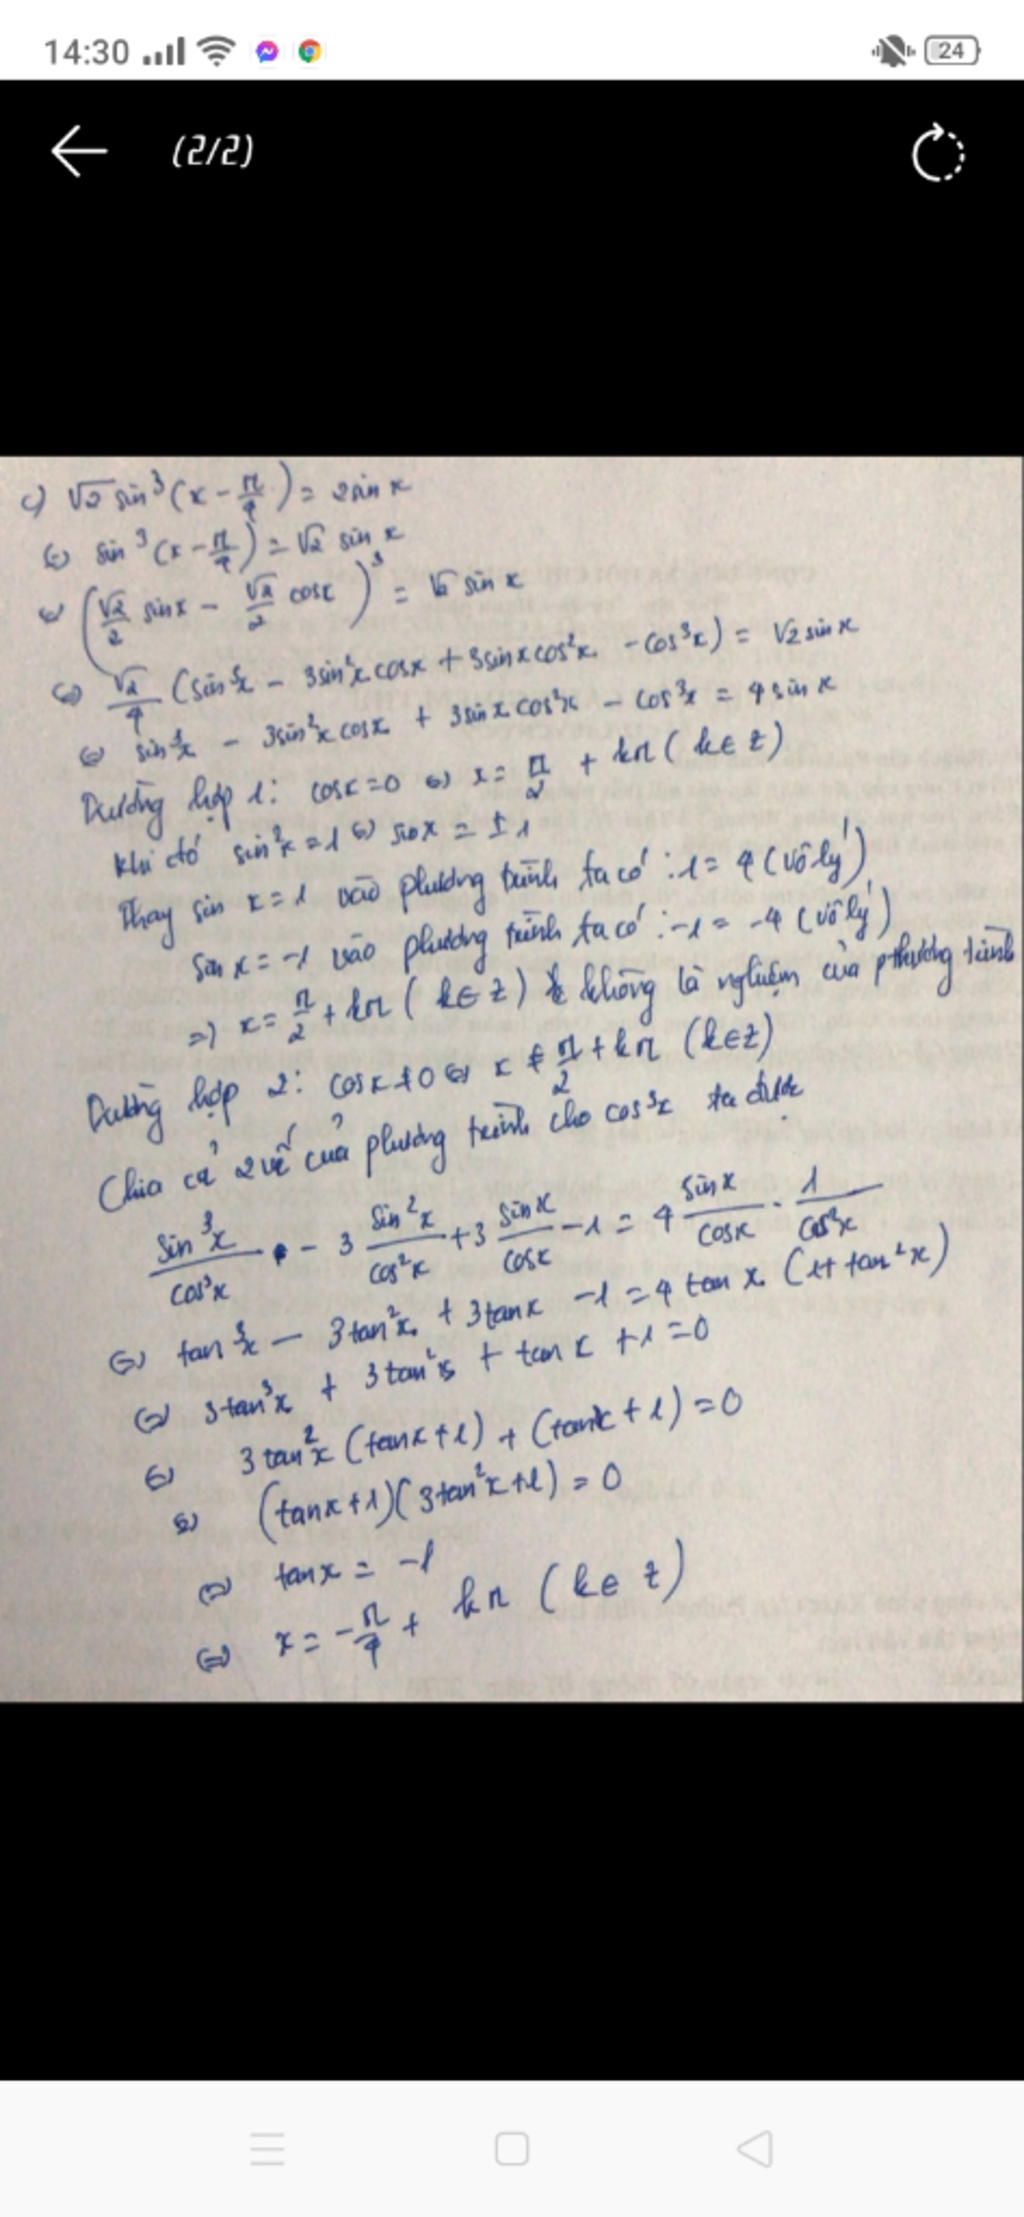 14:30
24
(2/2)
c) √2 sin³(x - π/4) = 2sin x
⇔ sin³(x - π/4) = √2 sin x
⇔ (√2/2 sin x - √2/2 cos x)³ = √2 sin x
⇔ √2/4 (sin³x - 3sin²x cosx + 3sinx cos²x - cos³x) = √2 sin x
⇔ sin³x - 3sin²x cosx + 3sin x cos²x - cos³x = 4 sin x
Trường hợp 1: cosx = 0 ⇔ x = π/2 + kπ (k∈Z)
khi đó sin²x = 1 ⇔ sin x = ±1
Thay sin x = 1 vào phương trình ta có: 1 = 4 (vô lý)
sin x = -1 vào phương trình ta có: -1 = -4 (vô lý)
⇒ x = π/2 + kπ (k∈Z) không là nghiệm của phương trình
Trường hợp 2: cosx ≠ 0 ⇔ x ≠ π/2 + kπ (k∈Z)
Chia cả 2 vế của phương trình cho cos³x ta được
sin³x/cos³x - 3 sin²x/cos²x + 3 sinx/cosx - 1 = 4 sinx/cosx . 1/cos²x
⇔ tan³x - 3tan²x + 3tanx - 1 = 4 tan x. (1 + tan²x)
⇔ 3tan³x + 3tan²x + tan x + 1 = 0
⇔ 3tan²x (tanx + 1) + (tanx + 1) = 0
⇔ (tanx + 1)(3tan²x + 1) = 0
⇔ tanx = -1
⇔ x = -π/4 + kπ (k∈Z)